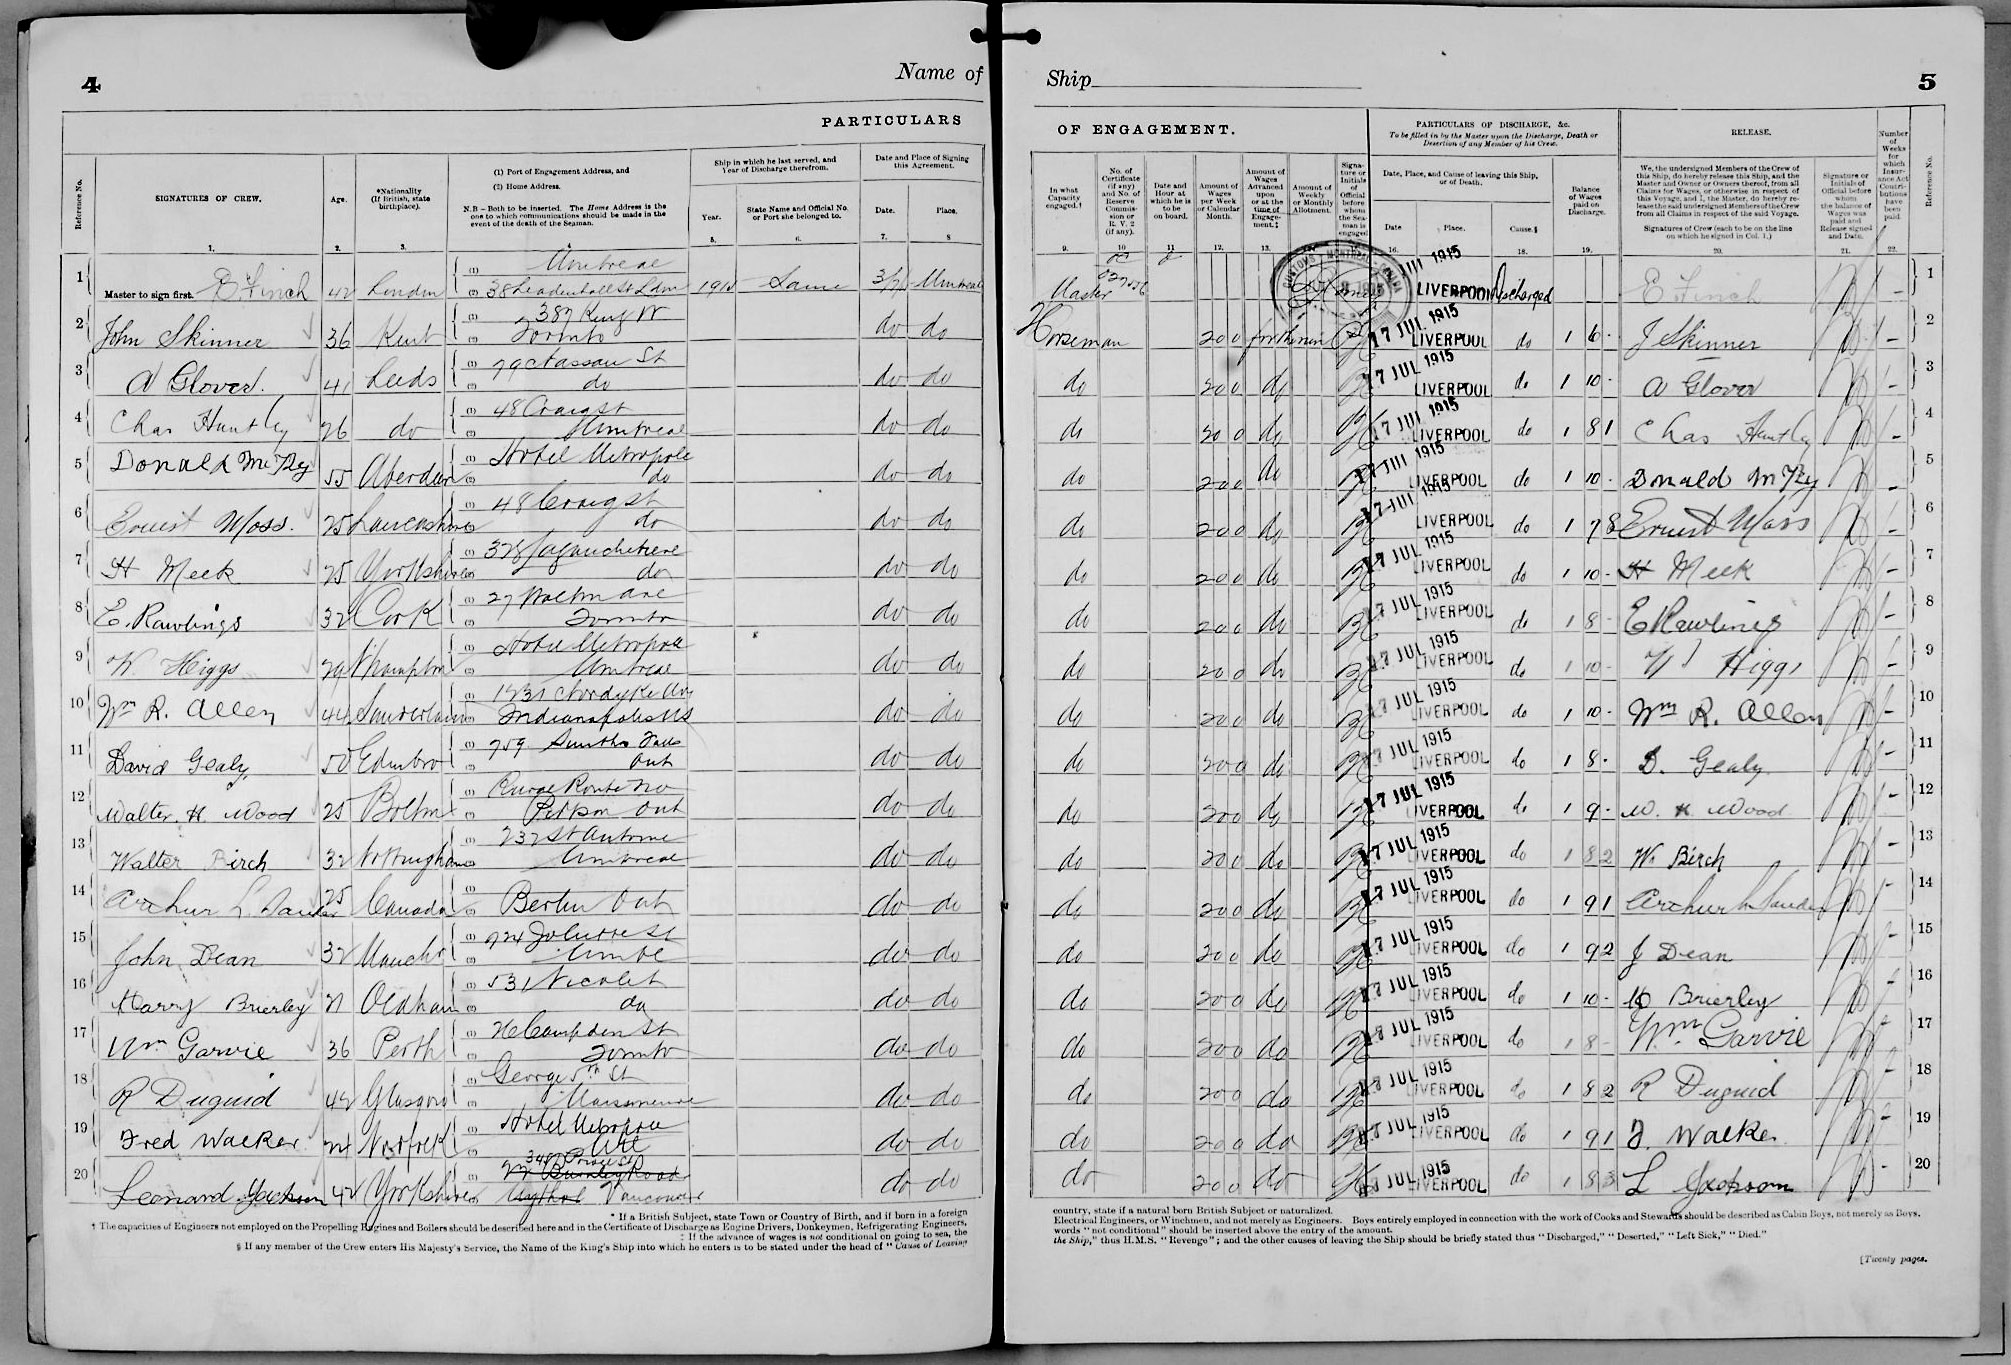 4
Name of
PARTICULARS
Reference No.
SIGNATURES OF CREW.
Age.
*Nationality
(If British, state
birthplace).
(1) Port of Engagement Address, and
(2) Home Address.
N.B – Both to be inserted. The Home Address is the
one to which communications should be made in the
event of the death of the Seaman.
Ship in which he last served, and
Year of Discharge therefrom.
Year.
State Name and Official No.
or Port she belonged to.
Date and Place of Signing
this Agreement.
Date.
Place.
1. 2. 3. 4. 5. 6. 7. 8
1 Master to sign first. E Finch 42 London (1) Montreal
(2) 38 Leadenhall St Ldn 191 Same Montreal
2 John Skinner 36 Kent (1) 387 King W
(2) Toronto do do
3 A Glover. 41 Leeds (1) 79 Nassau St
(2) do do do
4 Chas Huntley 26 do (1) 48 Craig St
(2) Montreal do do
5 Donald 55 Aberdeen (1) Hotel Metropole
(2) do do do
6 Ernest Moss. 25 Lancashire (1) 48 Craig St
(2) do do do
7 H Meek 25 Yorkshire (1) Lagauchetiere
(2) do do do
8 E. Rawlings 32 Cork (1) 27
(2) Toronto do do
9 W. Higgs 29 N'hampton (1) Hotel Metropole
(2) Montreal do do
10 Wm R. Allen 44 Sunderland (1) Nordyke Ave
(2) Indianapolis US do do
11 David Gealy 50 Edinbro (1) 759 Smiths Falls
(2) Ont do do
12 Walter H Wood 25 Bolton (1) Rural Route No
(2) Ont do do
13 Walter Birch 32 Nottingham (1) 232 St Antoine
(2) Montreal do do
14 Arthur L 25 Canada (1)
(2) Berlin Ont do do
15 John Dean 32 Manchr (1) 924 Joliette St
(2) do do
16 Harry Brierley 21 Oldham (1) 531 Nicolet
(2) do do do
17 Wm Garvie 36 Perth (1) 26 Campden St
(2) Toronto do do
18 R Duguid 42 Glasgow (1) George 5th St
(2) Maisoneuve do do
19 Fred Walker 24 Norfolk (1) Hotel Metropole
(2) do do
20 Leonard Jackson 42 Yorkshire (1) Burnley Road
(2) Vancouver do do
* If a British Subject, state Town or Country of Birth, and if born in a foreign
† The capacities of Engineers not employed on the Propelling Engines and Boilers should be described here and in the Certificate of Discharge as Engine Drivers, Donkeymen, Refrigerating Engineers,
‡ If the advance of wages is not conditional on going to sea, the
§ If any member of the Crew enters His Majesty's Service, the Name of the King's Ship into which he enters is to be stated under the head of "Cause of Leaving
Ship
5
OF ENGAGEMENT.
PARTICULARS OF DISCHARGE, &c.
To be filled in by the Master upon the Discharge, Death or
Desertion of any Member of his Crew.
RELEASE.
In what
Capacity
engaged.†
No. of
Certificate
(if any)
and No. of
Reserve
Commis-
sion or
R. V. 2
(if any).
Date and
Hour at
which he is
to be
on board.
Amount of
Wages
per Week
or Calendar
Month.
Amount of
Wages
Advanced
upon
or at the
time of
Engage-
ment.‡
Amount of
Weekly
or Monthly
Allotment.
Signa-
ture or
Initials
of
Official
before
whom
the Sea-
man is
engaged
Date, Place, and Cause of leaving this Ship,
or of Death.
Date
Place.
Cause.§
Balance
of Wages
paid on
Discharge.
We, the undersigned Members of the Crew of
this Ship, do hereby release this Ship, and the
Master and Owner or Owners thereof, from all
Claims for Wages, or otherwise in respect of
this Voyage, and I, the Master, do hereby re-
lease the said undersigned Members of the Crew
from all Claims in respect of the said Voyage.
Signatures of Crew (each to be on the line
on which he signed in Col. 1.)
Signature or
Initials of
Official before
whom
the balance of
Wages was
paid and
Release signed
and Date.
Number
of
Weeks
for
which
Insur-
ance Act
Contri-
butions
have
been
paid.
Reference No.
9. 10 11 12. 13. 15. 16. 18. 19. 20. 21. 22.
CUSTOMS MONTREAL CANADA
Master 1915 LIVERPOOL Discharged E Finch 1
Horseman 200 17 JUL 1915 LIVERPOOL do 1 6 - J Skinner 2
do 200 do 17 JUL 1915 LIVERPOOL do 1 10 - A Glover 3
do 200 do 17 JUL 1915 LIVERPOOL do 1 8 1 Chas Huntley 4
do 200 do 17 JUL 1915 LIVERPOOL do 1 10 - Donald 5
do 200 do 17 JUL 1915 LIVERPOOL do 1 7 8 Ernest Moss 6
do 200 do 17 JUL 1915 LIVERPOOL do 1 10 - H Meek 7
do 200 do 17 JUL 1915 LIVERPOOL do 1 8 - E Rawlings 8
do 200 do 17 JUL 1915 LIVERPOOL do 1 10 - W Higgs 9
do 200 do 17 JUL 1915 LIVERPOOL do 1 10 - Wm R. Allen 10
do 200 do 17 JUL 1915 LIVERPOOL do 1 8 - D. Gealy 11
do 200 do 17 JUL 1915 LIVERPOOL do 1 9 - W. H Wood 12
do 200 do 17 JUL 1915 LIVERPOOL do 1 8 2 W. Birch 13
do 200 do 17 JUL 1915 LIVERPOOL do 1 9 1 Arthur 14
do 200 do 17 JUL 1915 LIVERPOOL do 1 9 2 J Dean 15
do 200 do 17 JUL 1915 LIVERPOOL do 1 10 - H Brierley 16
do 200 do 17 JUL 1915 LIVERPOOL do 1 8 - Wm Garvie 17
do 200 do 17 JUL 1915 LIVERPOOL do 1 8 2 R Duguid 18
do 200 do 17 JUL 1915 LIVERPOOL do 1 9 1 F. Walker 19
do 200 do 17 JUL 1915 LIVERPOOL do 1 8 3 L Jackson 20
country, state if a natural born British Subject or naturalized.
Electrical Engineers, or Winchmen, and not merely as Engineers. Boys entirely employed in connection with the work of Cooks and Stewards should be described as Cabin Boys, not merely as Boys.
words "not conditional" should be inserted above the entry of the amount.
the Ship," thus H.M.S. "Revenge"; and the other causes of leaving the Ship should be briefly stated thus "Discharged," "Deserted," "Left Sick," "Died."
[Twenty pages.